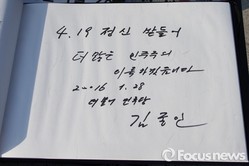 4.19 정신 받들어
더 많은 민주주의
이루겠습니다
2016 1.28
더불어 민주당
김종인
Focus news